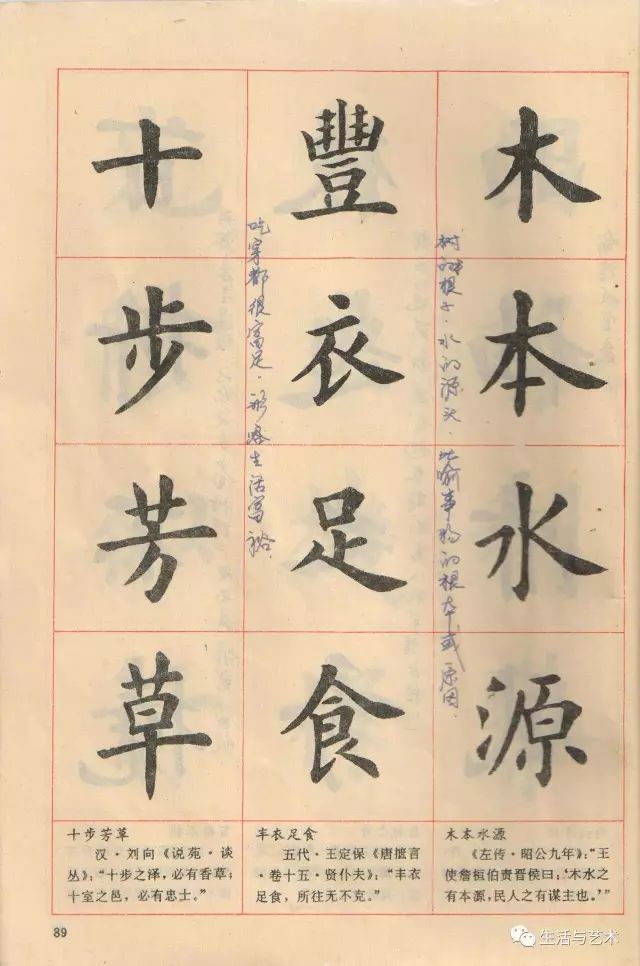 木本水源
树的根子．水的源头．比喻事物的根本或原因．
豐衣足食
吃穿都很富足．形容生活富裕．
十步芳草
十步芳草
汉·刘向《说苑·谈
丛》：“十步之泽，必有香草；
十室之邑，必有忠士。”
丰衣足食
五代·王定保《唐摭言
·卷十五·贤仆夫》：“丰衣
足食，所往无不克。”
木本水源
《左传·昭公九年》：“王
使詹桓伯责晋侯曰：‘木水之
有本源，民人之有谋主也。’”
89
生活与艺术